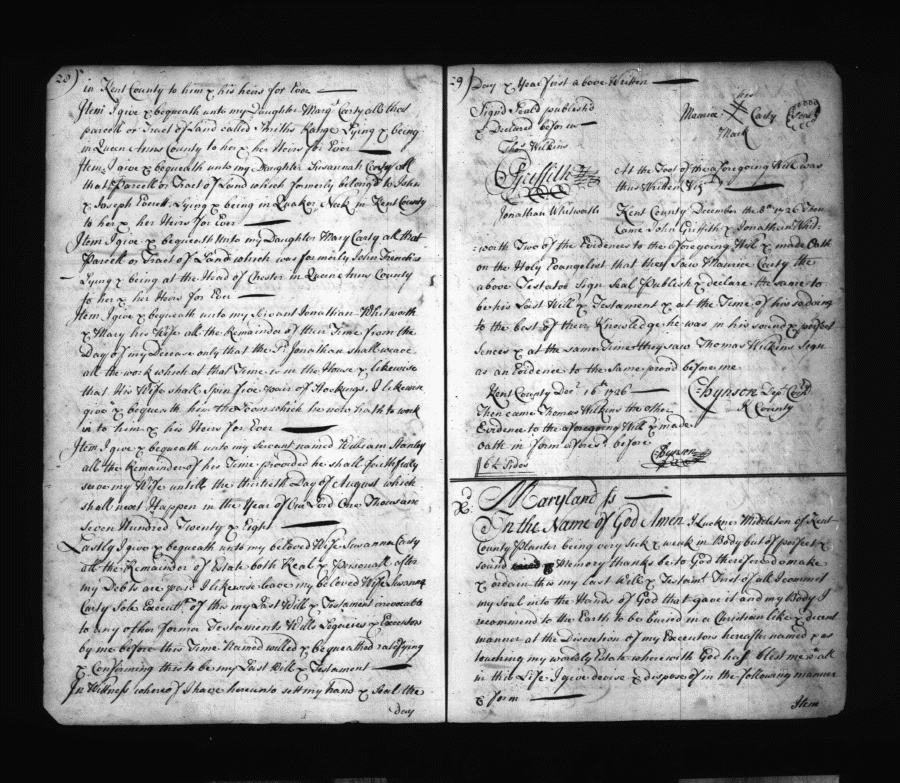 28)
in Kent County to him & his heirs for Ever
Item I give & bequeath unto my Daughter Margt Carty all that
parcell or Tract of Land called Smiths Range Lying & being
in Queen Anns County to her & her Heirs for Ever
Item I give & bequeath unto my Daughter Susannah Carty all
that Parcell or Tract of Land which formerly belong'd to John
& Joseph Everett Lying & being in Quaker Neck in Kent County
to her & her Heirs for Ever
Item I give & bequeath Unto my Daughter Mary Carty all that
Parcell or Tract of Land which was formerly John French's
Lying & being at the Head of Chester in Queen Anns County
to her & her Heirs for Ever
Item I give & bequeath unto my Servant Jonathan Whitworth
& Mary his Wife all the Remainder of their Time from the
Day of my Decease only that the Sd Jonathan shall weave
all the work which at that Time is in the House & likewise
that His Wife shall Spin five pair of Stockings. I likewise
give & bequeath him the Loom which he now hath to work
in to him & his Heirs for Ever
Item I give & bequeath unto my Servant named William Stanley
all the Remainder of his Time provided he shall faithfully
serve my Wife untill the thirtieth Day of August which
shall next Happen in the Year of Our Lord One Thousand
Seven Hundred Twenty & Eight
Lastly I give & bequeath unto my beloved Wife Susanna Carty
all the Remainder of Estate both Real & Personall after
my Debts are paid I likewise leave my beloved Wife Susanna
Carty Sole Execut. of this my Last Will & Testament irrevocable
to any other former Testaments Wills Legacies & Executors
by me before this Time Named willed & bequeathed ratifying
& Confirming this to be my Last Will & Testament
In Witness whereof I have hereunto sett my hand & Seal the
day
29)
Day & Year first above Written
Sign'd Seal'd publish'd
& Declared before us
Thos Wilkins
JGriffith
Jonathan Whitworth
his
Maurice Carty (Seal)
Mark
At the Foot of the aforegoing Will was
thus Written Vizt
Kent County December the 6th 1726 Then
Came John Griffith & Jonathan Whit-
worth Two of the Evidences to the aforegoing Will & made Oath
on the Holy Evangelist that they Saw Maurice Carty the
above Testator Sign Seal Publish & declare the same to
be his Last Will & Testament & at the Time of his so doing
to the best of their Knowledge he was in his sound & perfect
Sences & at the same Time they saw Thomas Wilkins Sign
as an Evidence to the Same proved before me
Kent County Decr 16th 1726
Hynson Depy Comy
K County
Then came Thomas Wilkins the other
Evidence to the aforegoing Will & made
oath in form afores'd before
Hynson
6½ Sides
Maryland ss
In the Name of God Amen I Luckner Middleton of Kent
County Planter being very sick & weak in Body but of perfect &
sound Memory thanks be to God therefore do make
& ordain this my last Will & Testamt First of all I commit
my Soul into the Hands of God that gave it and my Body I
recommend to the Earth to be buried in a Christian like & decent
manner at the Discretion of my Executors hereafter named & as
touching my worldly Estate wherewith God hath blest me wth all
in this Life I give devise & dispose of in the following manner
& form
Item